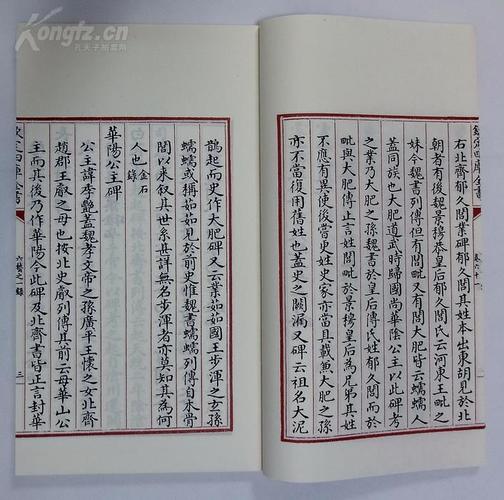 Kongfz.cn
孔夫子拍卖网
欽定四庫全書
右北齊郁久閭業碑郁久閭其姓本出東胡見於北
朝者有後魏景穆恭皇后郁久閭氏云河東王毗之
妹今魏書列傳但有閭毗又有閭大肥皆云蠕蠕人
蓋同族也大肥道武時歸國尚華陰公主以此碑考
之業乃大肥之孫魏書於皇后傳氏姓郁久閭而於
毗與大肥傳止言姓閭毗於景穆皇后為兄弟其姓
不應有異使後更史家亦當具載兼大肥之孫
亦不當復用舊姓也蓋史之闕漏又碑云祖名大泥
鵲起而史作大肥碑又云業茹茹國王步渾之玄孫
蠕蠕或稱茹茹見於前史惟魏書蠕蠕列傳自木骨
閭以來叙其世系甚詳無名步渾者亦莫知其為何
人也金石錄
華陽公主碑
公主諱李艷蓋魏孝文帝之孫廣平王懷之女北齊
趙郡王叡之母也按北史叡列傳其前云母華山公
主而其後乃作華陽今此碑及北齊書皆正言封華
欽定四庫全書
六藝之一錄
三